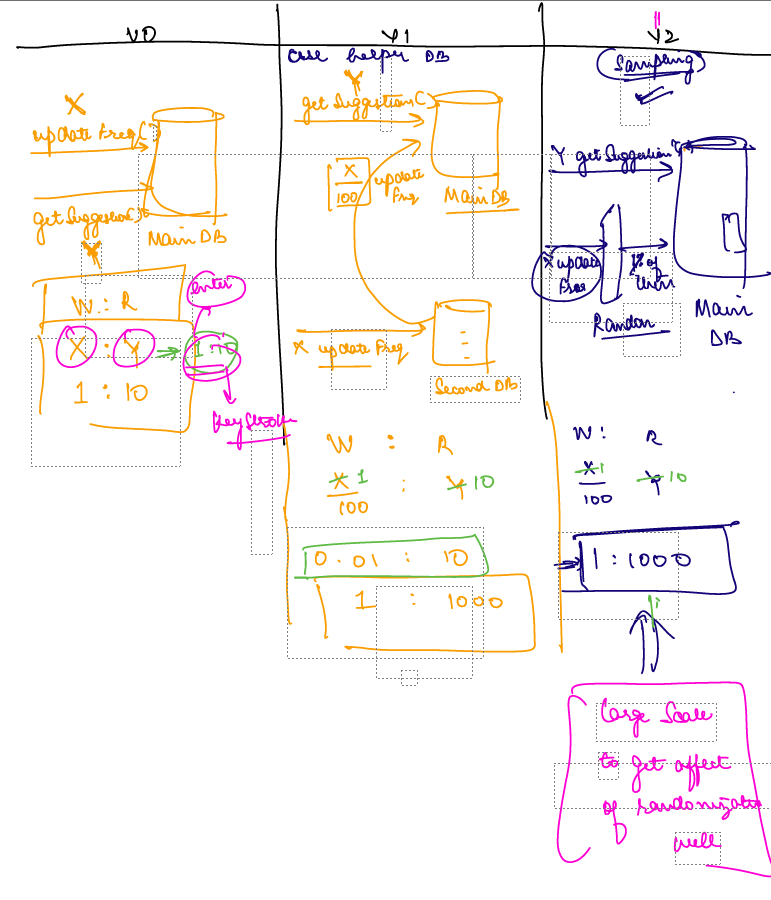 V0
X
update Freq()
getSuggestion()
Main DB
Y
W : R
X : Y → 1:10
1 : 10
enter
keystroke
V1
case helper DB
Y
getSuggestion()
X
100
update
Freq
Main DB
X update Freq
Second DB
W : R
X 1 : Y 10
100
0.01 : 10
1 : 1000
V2
Sampling
Y getSuggestion()
X update
Freq
1% of
Random
Main
DB
W : R
X 1 Y 10
100
1 : 1000
Large Scale
to get affect
of randomization
well